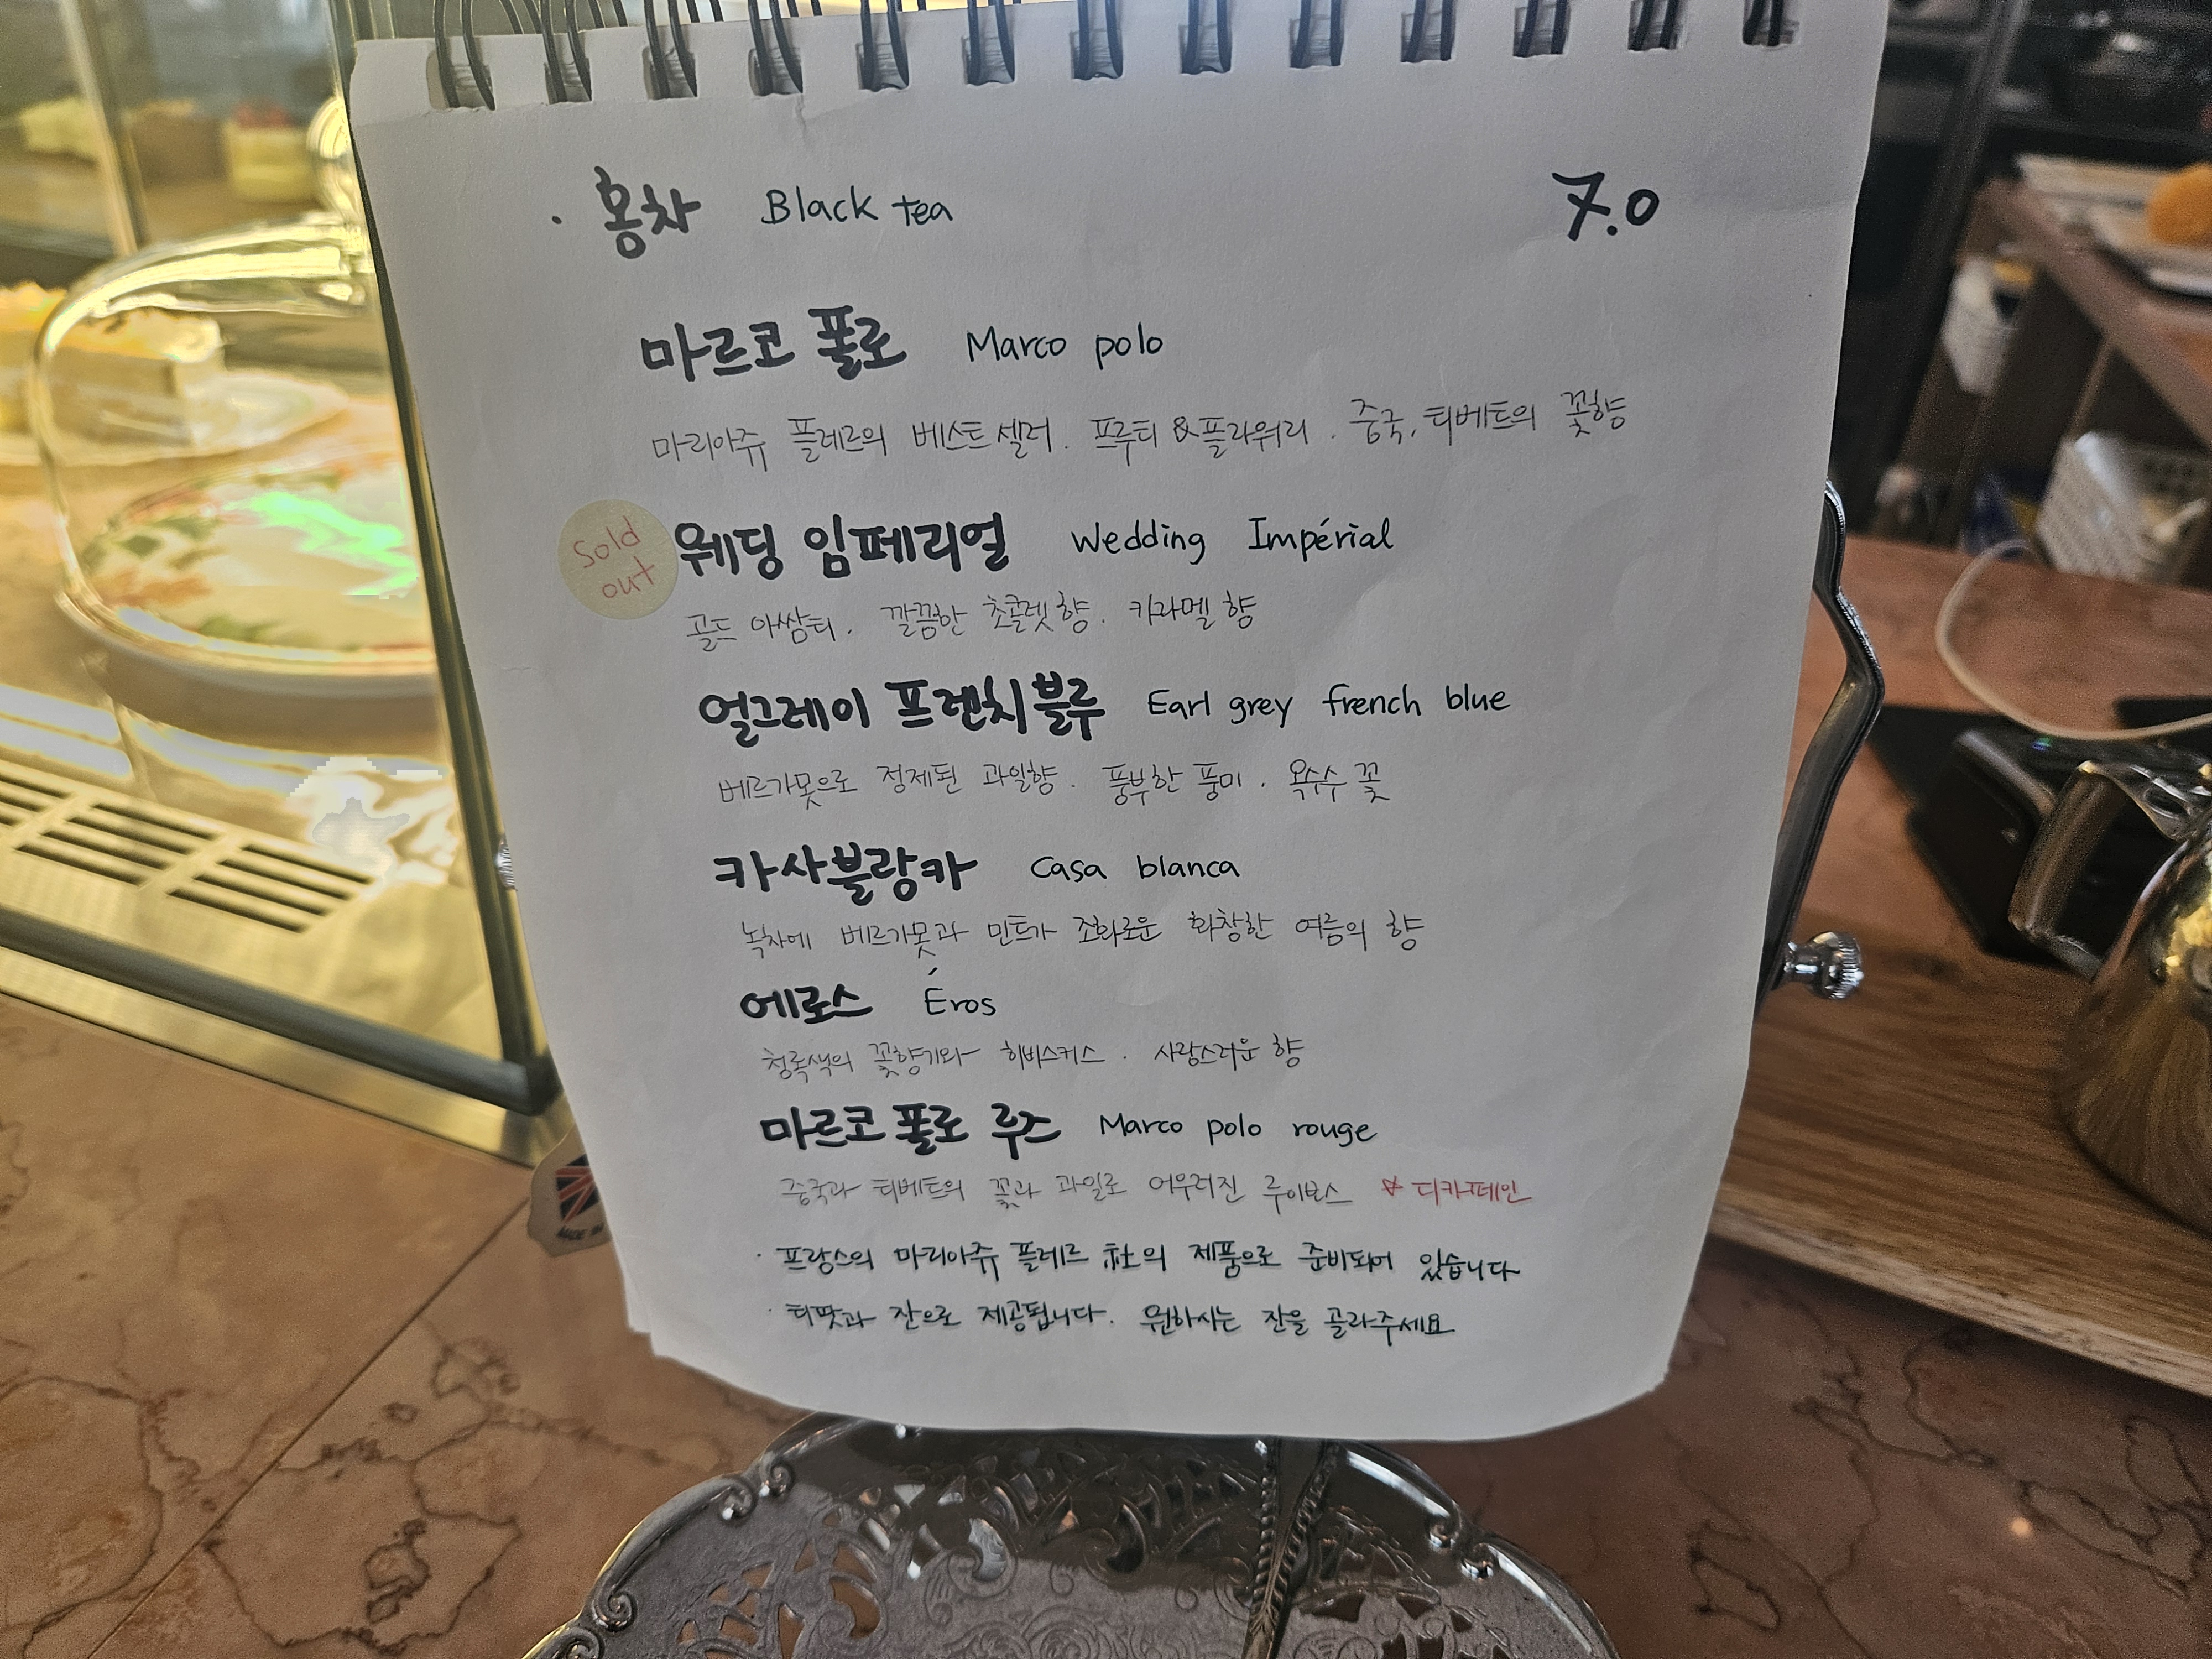 · 홍차 Black tea 7.0
마르코 폴로 Marco polo
마리아쥬 플레르의 베스트셀러. 프루티 & 플라워리. 중국, 티베트의 꽃향
Sold
out
웨딩 임페리얼 Wedding Impérial
골드 아쌈티. 깔끔한 초콜렛 향. 카라멜 향
얼그레이 프렌치 블루 Earl grey french blue
베르가못으로 정제된 과일향. 풍부한 풍미. 옥수수 꽃
카사블랑카 Casa blanca
녹차에 베르가못과 민트가 조화로운 화창한 여름의 향
에로스 Éros
청록색의 꽃향기와 히비스커스. 사랑스러운 향
마르코 폴로 루즈 Marco polo rouge
중국과 티베트의 꽃과 과일로 어우러진 루이보스 * 디카페인
· 프랑스의 마리아쥬 플레르 社의 제품으로 준비되어 있습니다
· 티팟과 잔으로 제공됩니다. 원하시는 잔을 골라주세요
MADE IN